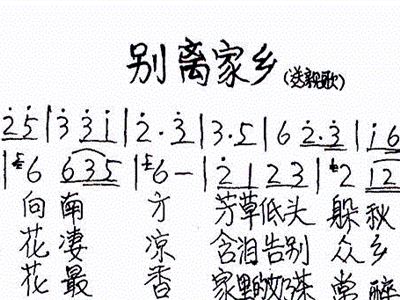 别离家乡(送亲歌)
2̇5|3̇31̇|2̇·3̇|3·5|62̇·3̇|1̇6
|6 635|6-|2̇1 23|2 12
向南 方 芳草低头 躲秋
花凄 凉 含泪告别 众乡
花最 香 家里的奶茶 常醉